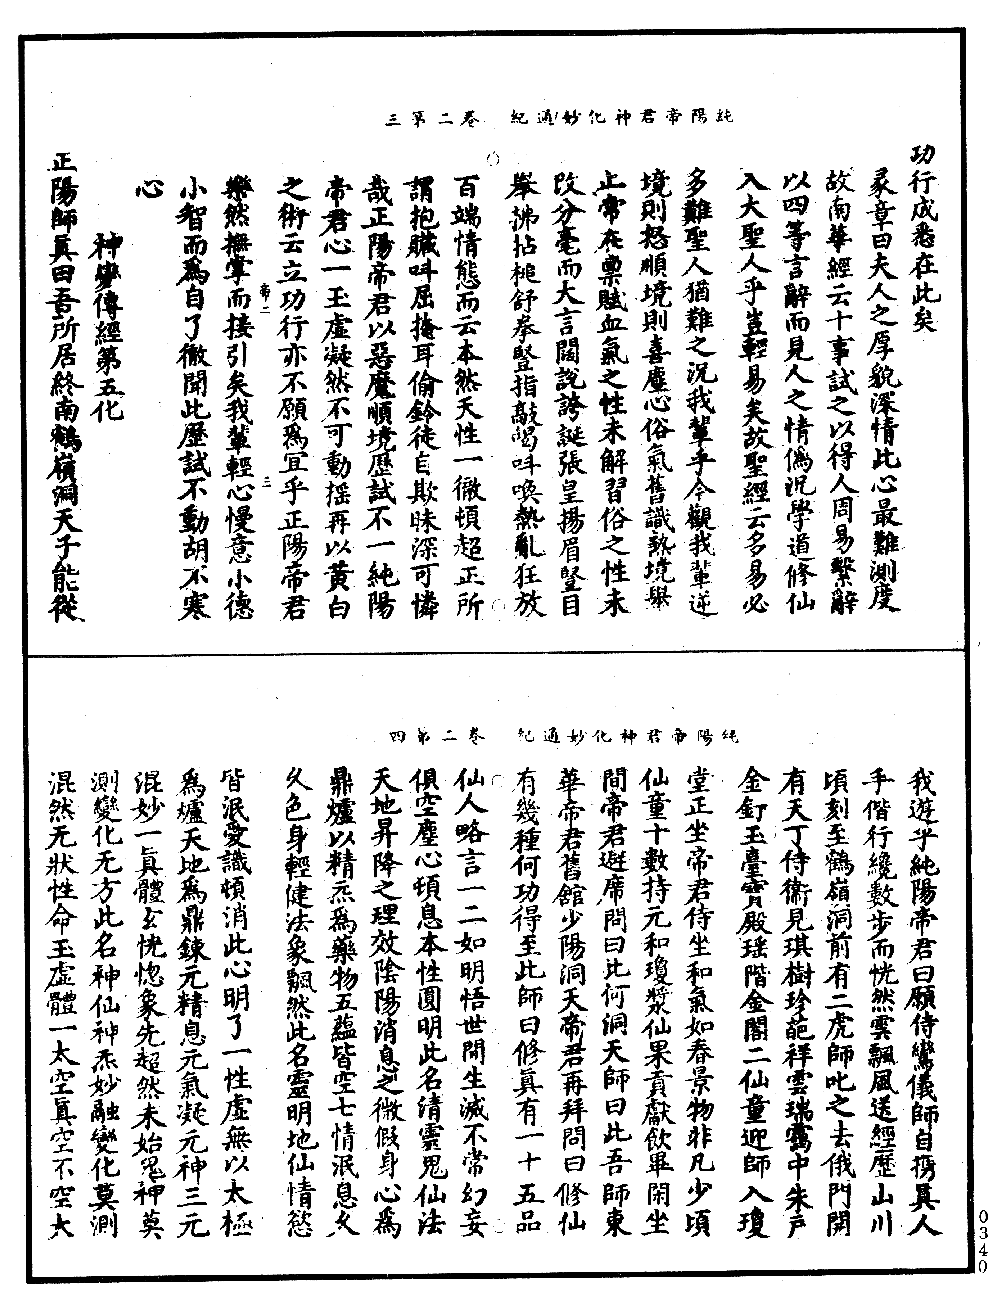 純陽帝君神化妙通紀　卷二第三
功行成悉在此矣
彖章曰夫人之厚貌深情此心最難測度
故南華經云十事試之以得人周易繫辭
以四等言辭而見人之情僞況學道修仙
入大聖人乎豈輕易矣故聖經云多易必
多難聖人猶難之況我輩乎今觀我輩逆
境則怒順境則喜塵心俗氣舊識熟境舉
止常在稟賦血氣之性未解習俗之性未
改分毫而大言闊說誇誕張皇揚眉豎目
舉拂拈槌舒拳豎指敲喝呌喚熱亂狂放
百端情態而云本然天性一徹頓超正所
謂抱贓呌屈掩耳偷鈴徒自欺昧深可憐
哉正陽帝君以惡魔順境歷試不一純陽
帝君心一玉虛凝然不可動搖再以黃白
之術云立功行亦不願爲宜乎正陽帝君
樂然撫掌而接引矣我輩輕心慢意小德
小智而爲自了徹開此歷試不動胡不寒
心
帝二　三
神變傳經第五化
正陽師眞曰吾所居終南鶴嶺洞天子能從
純陽帝君神化妙通紀　卷二第四
我遊乎純陽帝君曰願侍鸞儀師自携眞人
手偕行纔數步而恍然雲飄風送經歷山川
頃刻至鶴嶺洞前有二虎師叱之去俄門開
有天丁侍衛見琪樹珍葩祥雲瑞靄中朱戶
金釘玉臺寶殿瑶階金閣二仙童迎師入瓊
堂正坐帝君侍坐和氣如春景物非凡少頃
仙童十數持元和瓊漿仙果貢獻飲畢閑坐
間帝君避席問曰此何洞天師曰此吾師東
華帝君舊館少陽洞天帝君再拜問曰修仙
有幾種何功得至此師曰修眞有一十五品
仙人略言一二如明悟世間生滅不常幻妄
俱空塵心頓息本性圓明此名清靈鬼仙法
天地昇降之理效陰陽消息之微假身心爲
鼎爐以精炁爲藥物五蘊皆空七情泯息久
久色身輕健法象飄然此名靈明地仙情慾
皆泯愛識頓消此心明了一性虛無以太極
爲爐天地爲鼎鍊元精息元氣凝元神三元
混妙一眞體玄恍惚象先超然未始鬼神莫
測變化无方此名神仙神炁妙融變化莫測
混然无狀性命玉虛體一太空眞空不空大
0340